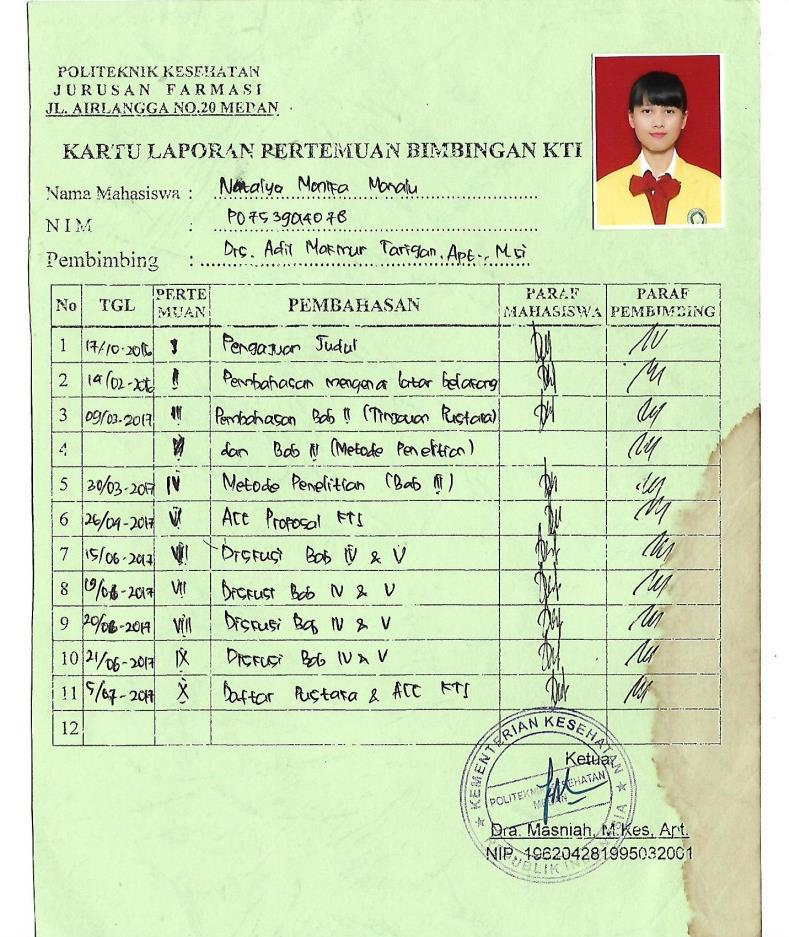 POLITEKNIK KESEHATAN
JURUSAN FARMASI
JL. AIRLANGGA NO.20 MEDAN
KARTU LAPORAN PERTEMUAN BIMBINGAN KTI
Nama Mahasiswa : Natalya Monika Manalu
NIM :
Pembimbing : Drs. Adil Makmur Tarigan, Apt., M.si
No TGL PERTEMUAN PEMBAHASAN PARAF MAHASISWA PARAF PEMBIMBING
1 17/10-2016 I Pengajuan Judul
2 II Pembahasan mengenai latar belakang
3 09/03-2017 III Pembahasan Bab II (Tinjauan Pustaka)
4 dan Bab III (Metode Penelitian)
5 30/03-2017 IV Metode Penelitian (Bab III)
6 26/04-2017 VI ACC Proposal KTI
7 15/06-2017 Diskusi Bab IV & V
8 19/06-2017 VII Diskusi Bab IV & V
9 20/06-2017 VIII Diskusi Bab IV & V
10 21/06-2017 IX Diskusi Bab IV & V
11 5/07-2017 X Daftar Pustaka & ACC KTI
12
KEMENTERIAN KESEHATAN
Ketua,
POLITEKNIK KESEHATAN
MEDAN
Dra. Masniah, M.Kes, Apt.
NIP. 196204281995032001
REPUBLIK INDONESIA